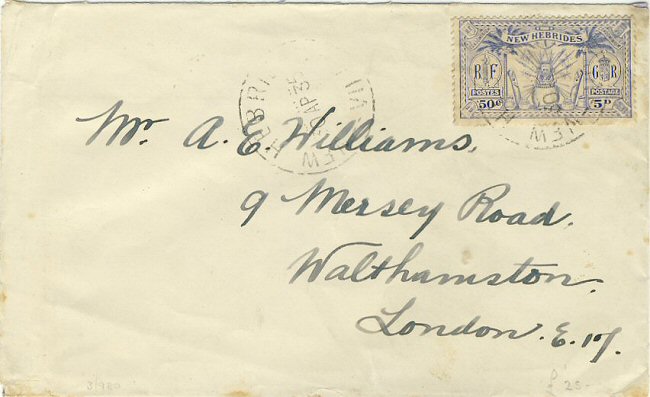 NEW HEBRIDES
RF GR
POSTES POSTAGE
50c 5D
Mr. A. E. Williams,
9 Mersey Road.
Walthamston.
London. E. 17.
£ 25-